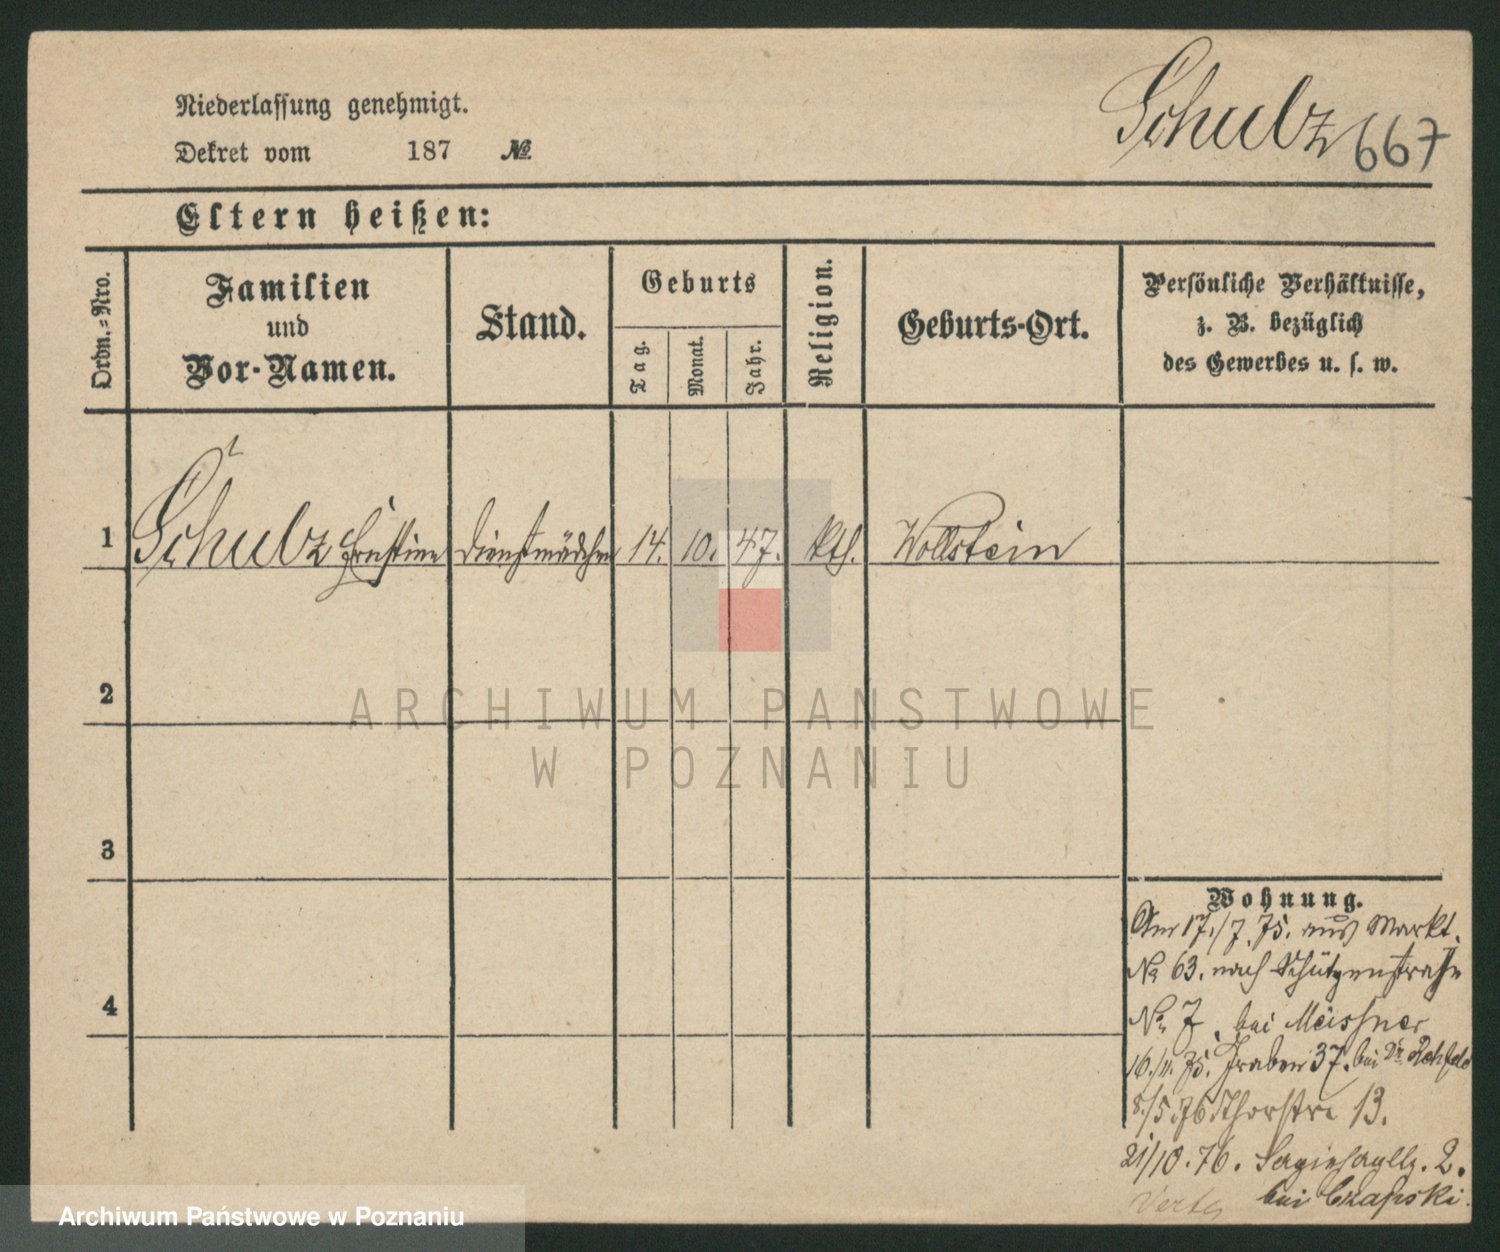 Niederlassung genehmigt.
Dekret vom 187 №
Schulz 667
Eltern heißen:
Ordn.-Nro.
Familien
und
Vor-Namen.
Stand.
Geburts
Tag.
Monat.
Jahr.
Religion.
Geburts-Ort.
Persönliche Verhältnisse,
z. B. bezüglich
des Gewerbes u. s. w.
1 Schulz Ernstine Dienstmädchen 14. 10. 47. kth. Wollstein
2
ARCHIWUM PANSTWOWE
W POZNANIU
3
4
Wohnung.
Am 17./7. 75. aus Markt
№ 63. nach Schützenstraße
№ 7. bei Meissner
16./11. 75. Graben 37. bei Dr
8/5 76 Thorstre 13.
21/10. 76. 2.
bei Czapski.
Verte
Archiwum Państwowe w Poznaniu